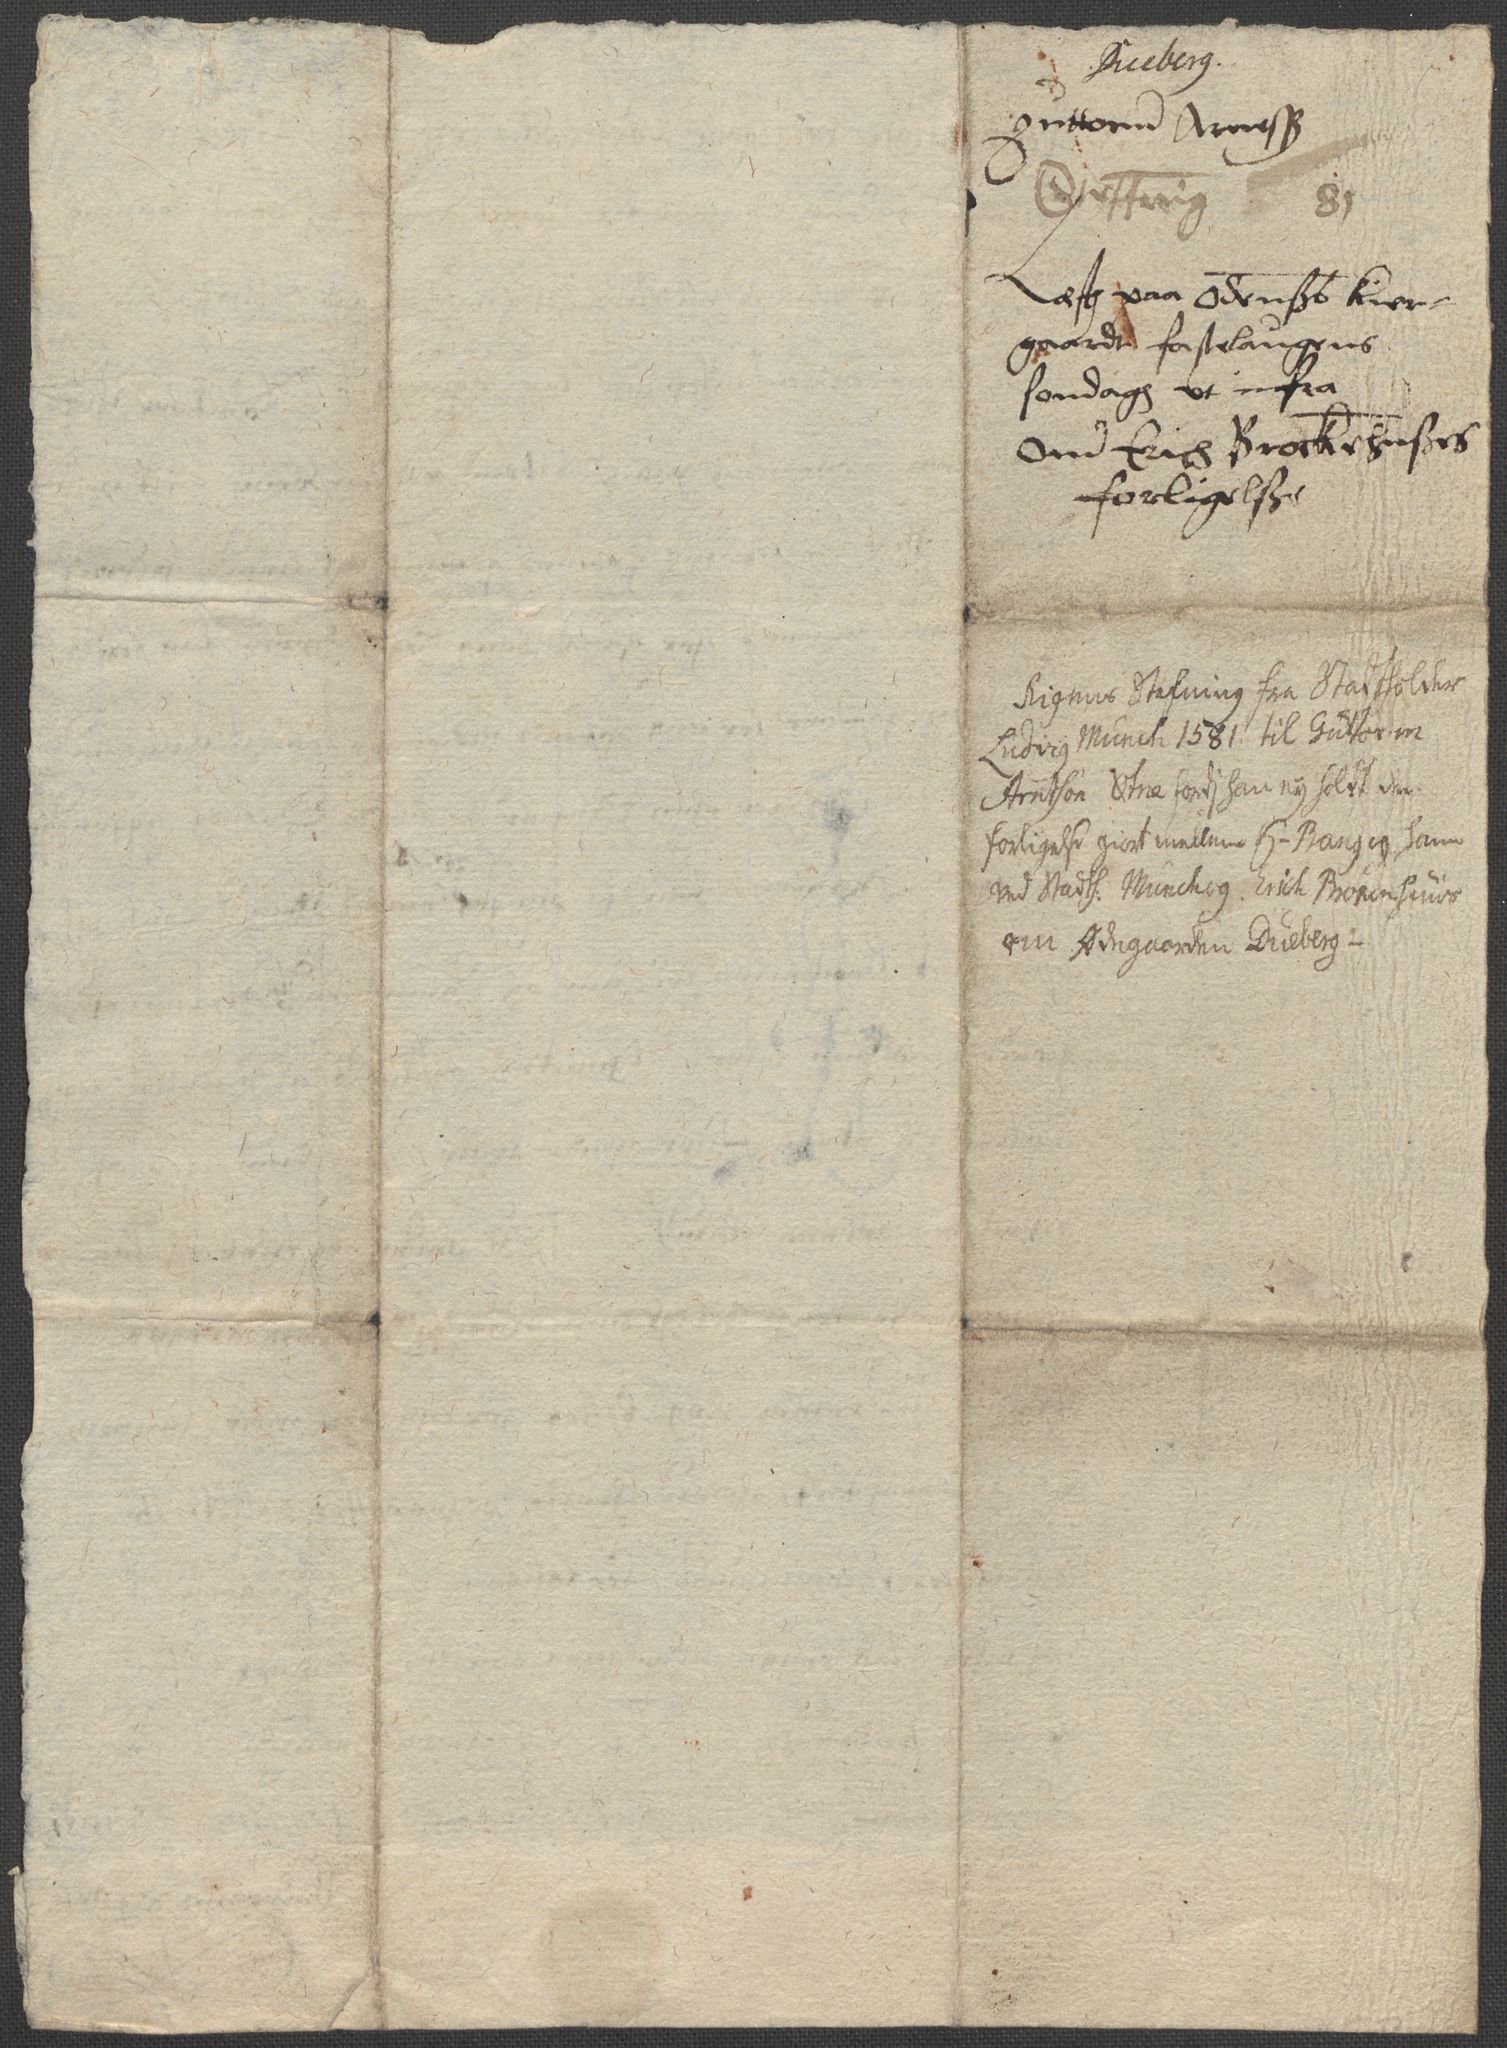 Dueberg.
guttorm Arneß
Steffning 81
Læst paa Odenßs kier-
gaardt fastelaugens
sondagh ut infra
Om Erich Brockehußes
forligelße
Rigens Stefning fra Stadtholder
Ludvig Munch 1581 til Guttorm
Arntsøn fordj han ey holdt den
forligelse giort mellem H- Bang og ham
ved Stadth. Munch og Erich Brokenhuus
om Ødegaarden Dueberg-